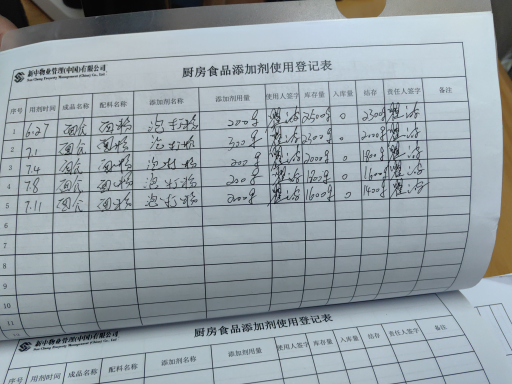 新中物业管理(中国)有限公司
Sun Chung Property Management (China) Co., Ltd
厨房食品添加剂使用登记表
序号 用剂时间 成品名称 配料名称 添加剂名称 添加剂用量 使用人签字 库存量 入库量 结存 责任人签字 备注
1 6.27 面食 面粉 泡打粉 200g 2500g 0 2300g
2 7.1 面食 面粉 泡打粉 300g 2300g 0 2000g
3 7.4 面食 面粉 泡打粉 200g 2000g 0 1800g
4 7.8 面食 面粉 泡打粉 200g 1800g 0 1600g
5 7.11 面食 面粉 泡打粉 200g 1600g 0 1400g
6
7
8
9
10
11
新中物业管理(中国)有限公司
Sun Chung Property Management (China) Co., Ltd
厨房食品添加剂使用登记表
序号 用剂时间 成品名称 配料名称 添加剂名称 添加剂用量 使用人签字 库存量 入库量 结存 责任人签字 备注